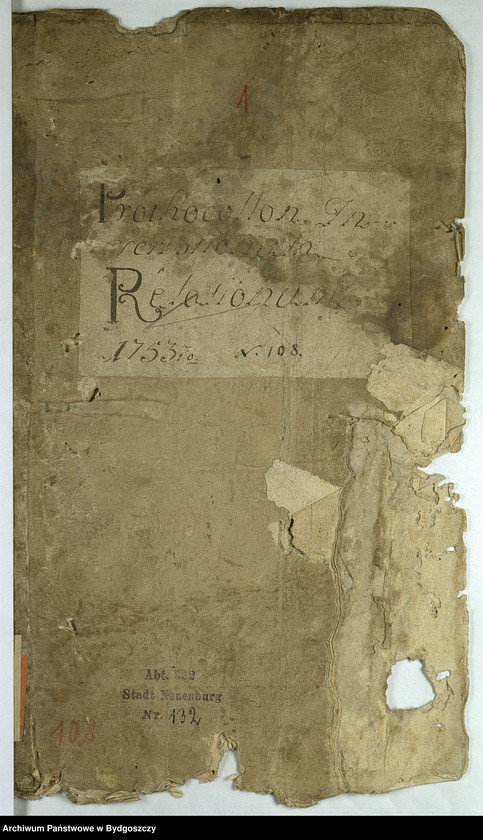 1
Prothocollon In-
Relationum
1753tio. N. 108.
Abt. 332
Stadt Neuenburg
Nr. 132
108
Archiwum Państwowe w Bydgoszczy